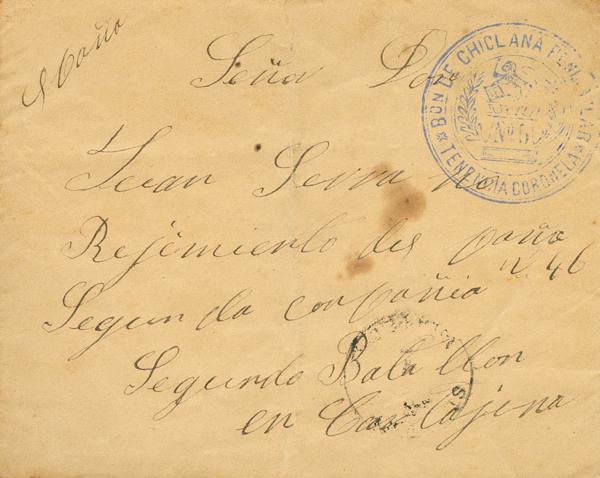 España
Señor Don
Juan Serrano
Rejimiento del España
n. 46
Segunda conpañia
Segundo Batallon
en Cartajena
BON DE CHICLANA PENINSULAR
Nº 5
TENENCIA CORONELA